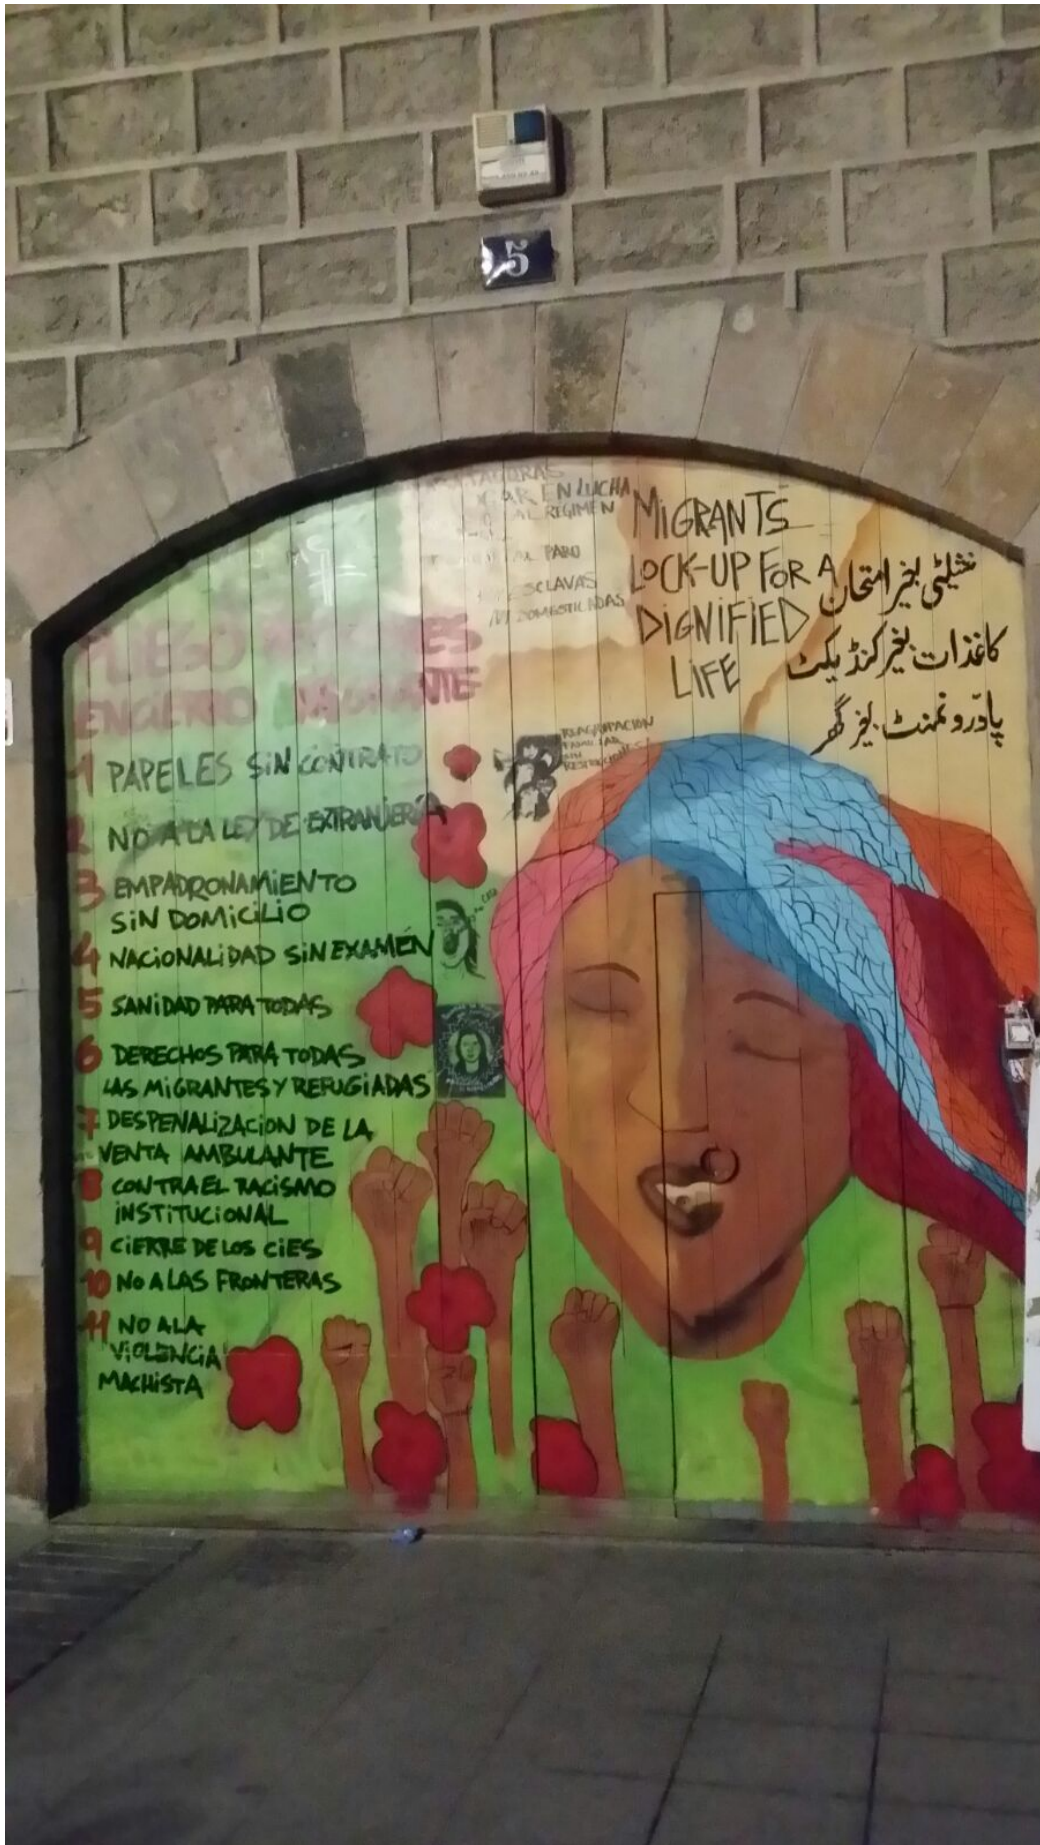 5
EN LUCHA
AL REGIMEN
AL PARO
ESCLAVAS
NI DOMESTICADAS
MiGRANTS
LOCK-UP FOR A
DiGNiFiED
LiFE
نشیلٹی بغیر امتحان
کاغذات بغیر کنڈیکٹ
پادرونمنٹ بغیر گھر
PLIEGO
ENCIERRO MIGRANTE
REAGRUPACION
FAMILIAR
SIN
RESTRICCIONES!
1 PAPELES SiN CONTRATO
2 NO A LA LEY DE EXTRANJERÍA
3 EMPADRONAMiENTO
SiN DOMiCiLiO
4 NACiONALiDAD SiN EXAMÉN
5 SANiDAD PARA TODAS
6 DERECHOS PARA TODAS
LAS MiGRANTES Y REFUGiADAS
7 DESPENALiZACiON DE LA
VENTA AMBULANTE
8 CONTRA EL RACiSMO
iNSTiTUCiONAL
9 CiERRE DE LOS CiES
10 NO A LAS FRONTERAS
11 NO A LA
ViOLENCiA
MACHiSTA